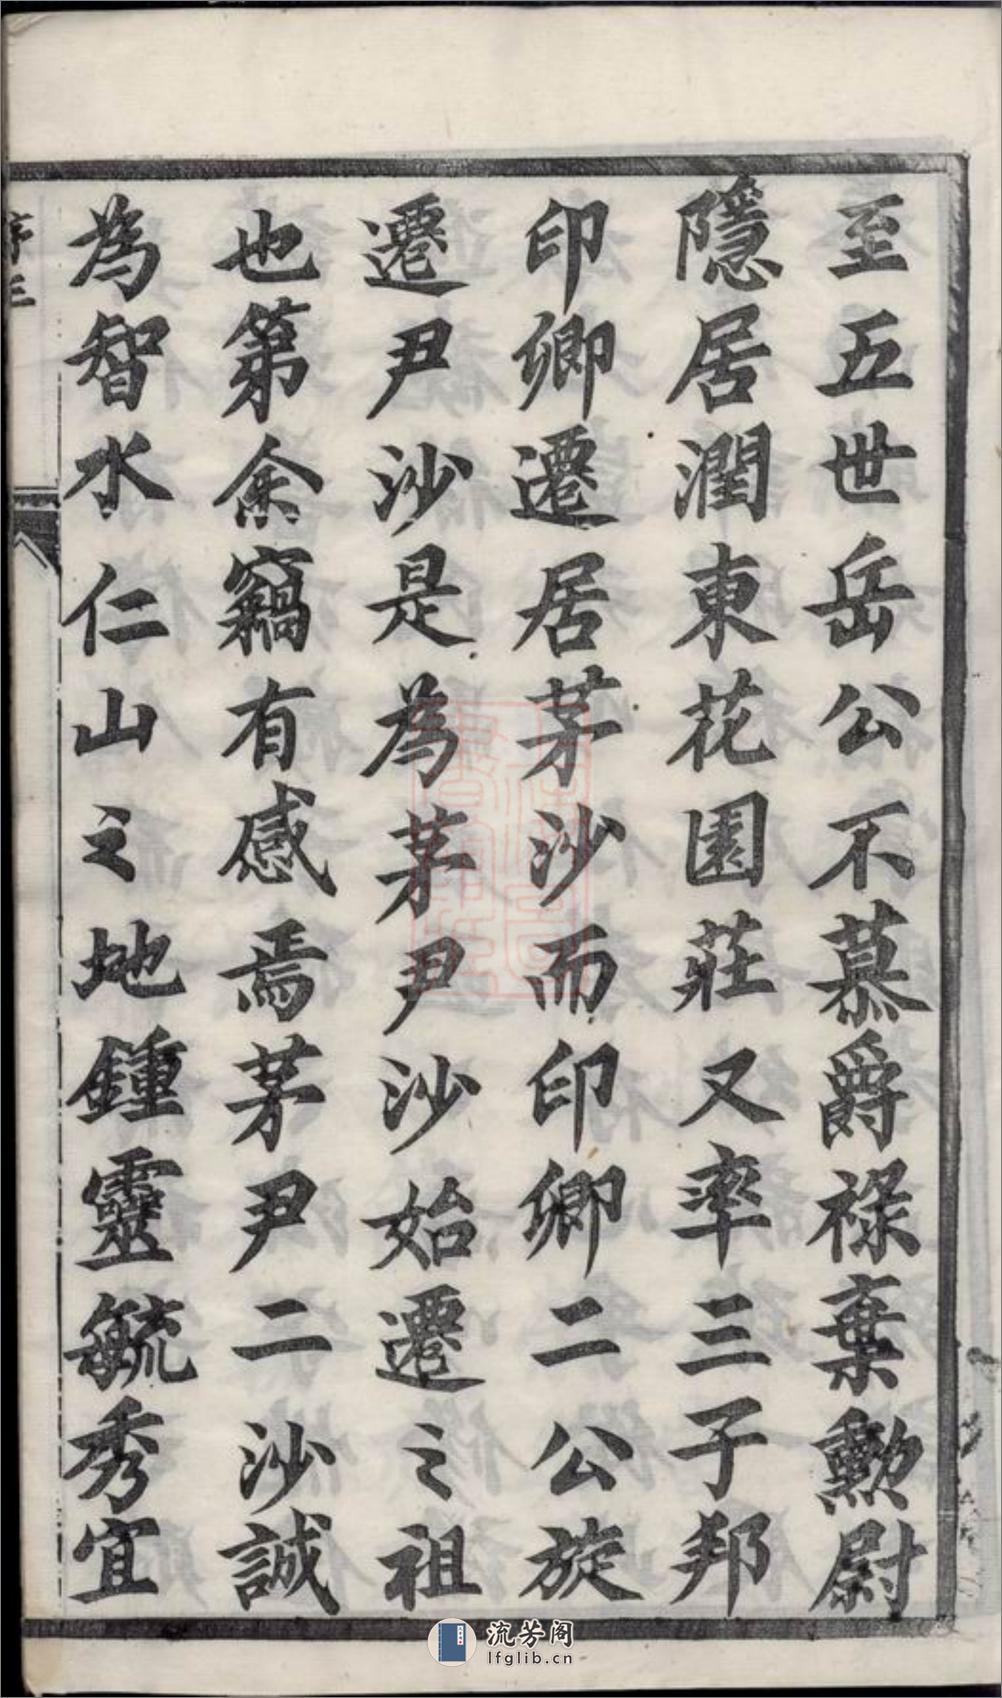 至五世岳公不慕爵祿棄勳尉
隱居潤東花園莊又率三子邦
印卿遷居茅沙而印卿二公旋
遷尹沙是為茅尹沙始遷之祖
也第余竊有感焉茅尹二沙誠
為智水仁山之地鍾靈毓秀宜
序 三
流芳阁
lfglib.cn